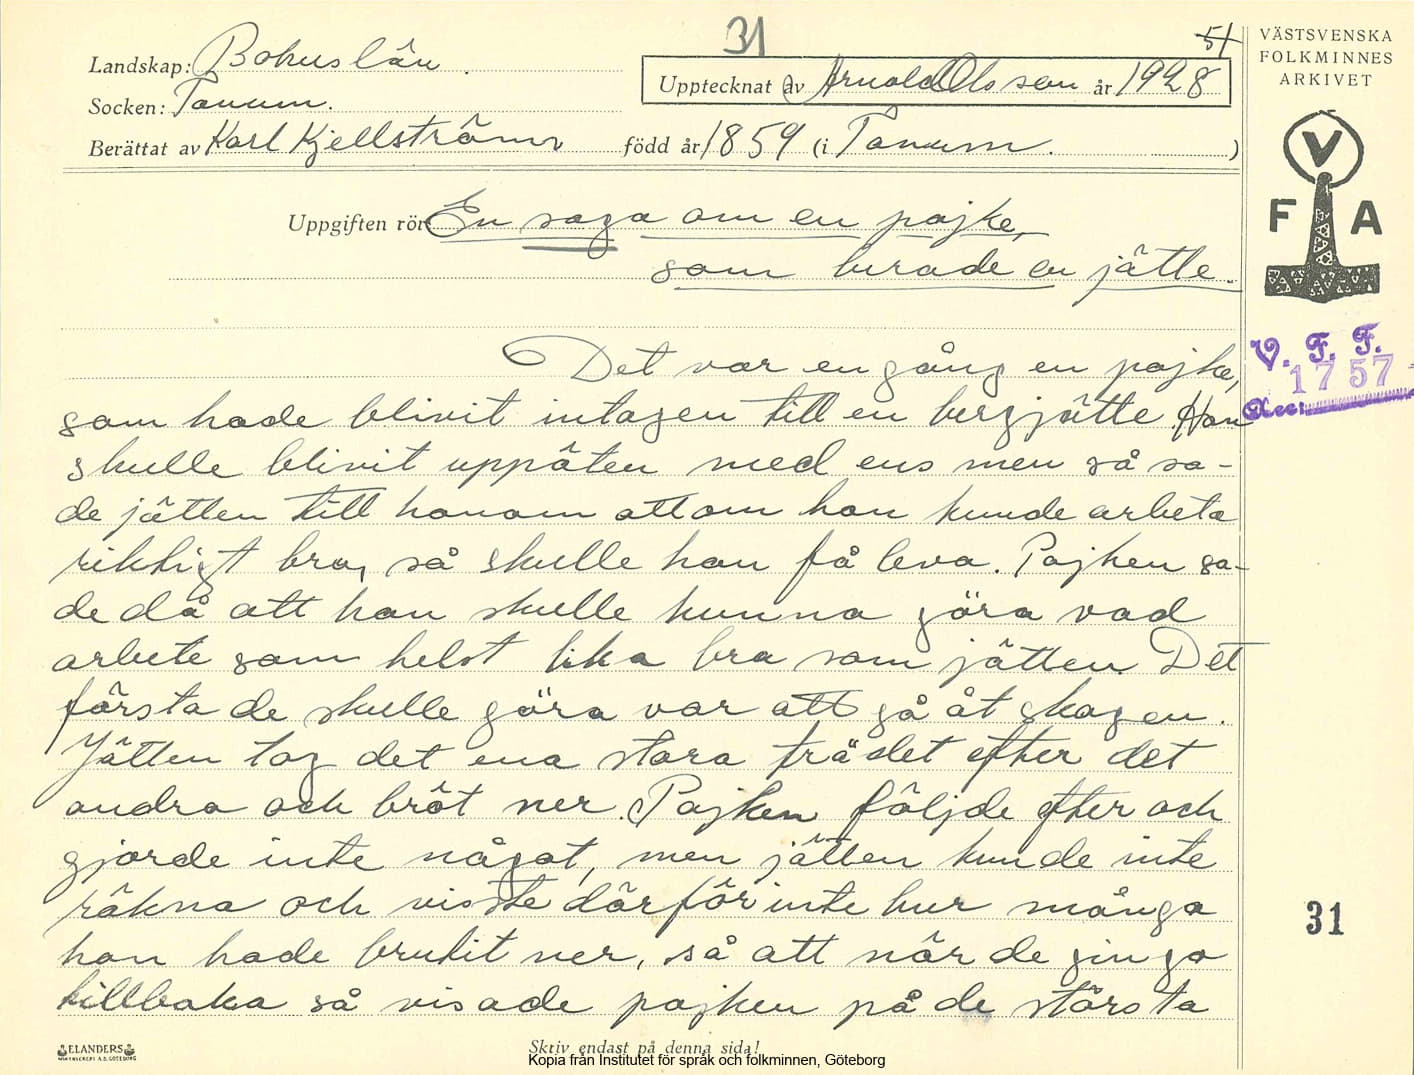 31
51
VÄSTSVENSKA
FOLKMINNES
ARKIVET
Landskap: Bohuslän.
Upptecknat av Arnold Olsson år 1928
Socken: Tanum.
Berättat av Karl Kjellström född år 1859 (i Tanum. )
V
F A
Uppgiften rör En saga om en pojke,
som lurade en jätte.
V. F. F.
1757
Acc:
Det var en gång en pojke,
som hade blivit intagen till en bergjätte. Han
skulle blivit uppäten med ens men så sa-
de jätten till honom att om han kunde arbeta
riktigt bra, så skulle han få leva. Pojken sa-
de då att han skulle kunna göra vad
arbete som helst lika bra som jätten. Det
första de skulle göra var att gå åt skogen.
Jätten tog det ena stora trädet efter det
andra och bröt ner. Pojken följde efter och
gjorde inte något, men jätten kunde inte
räkna och visste därför inte hur många
han hade brutit ner, så att när de gingo
tillbaka så visade pojken på de största
31
ELANDERS
Skriv endast på denna sida!
Kopia från Institutet för språk och folkminnen, Göteborg